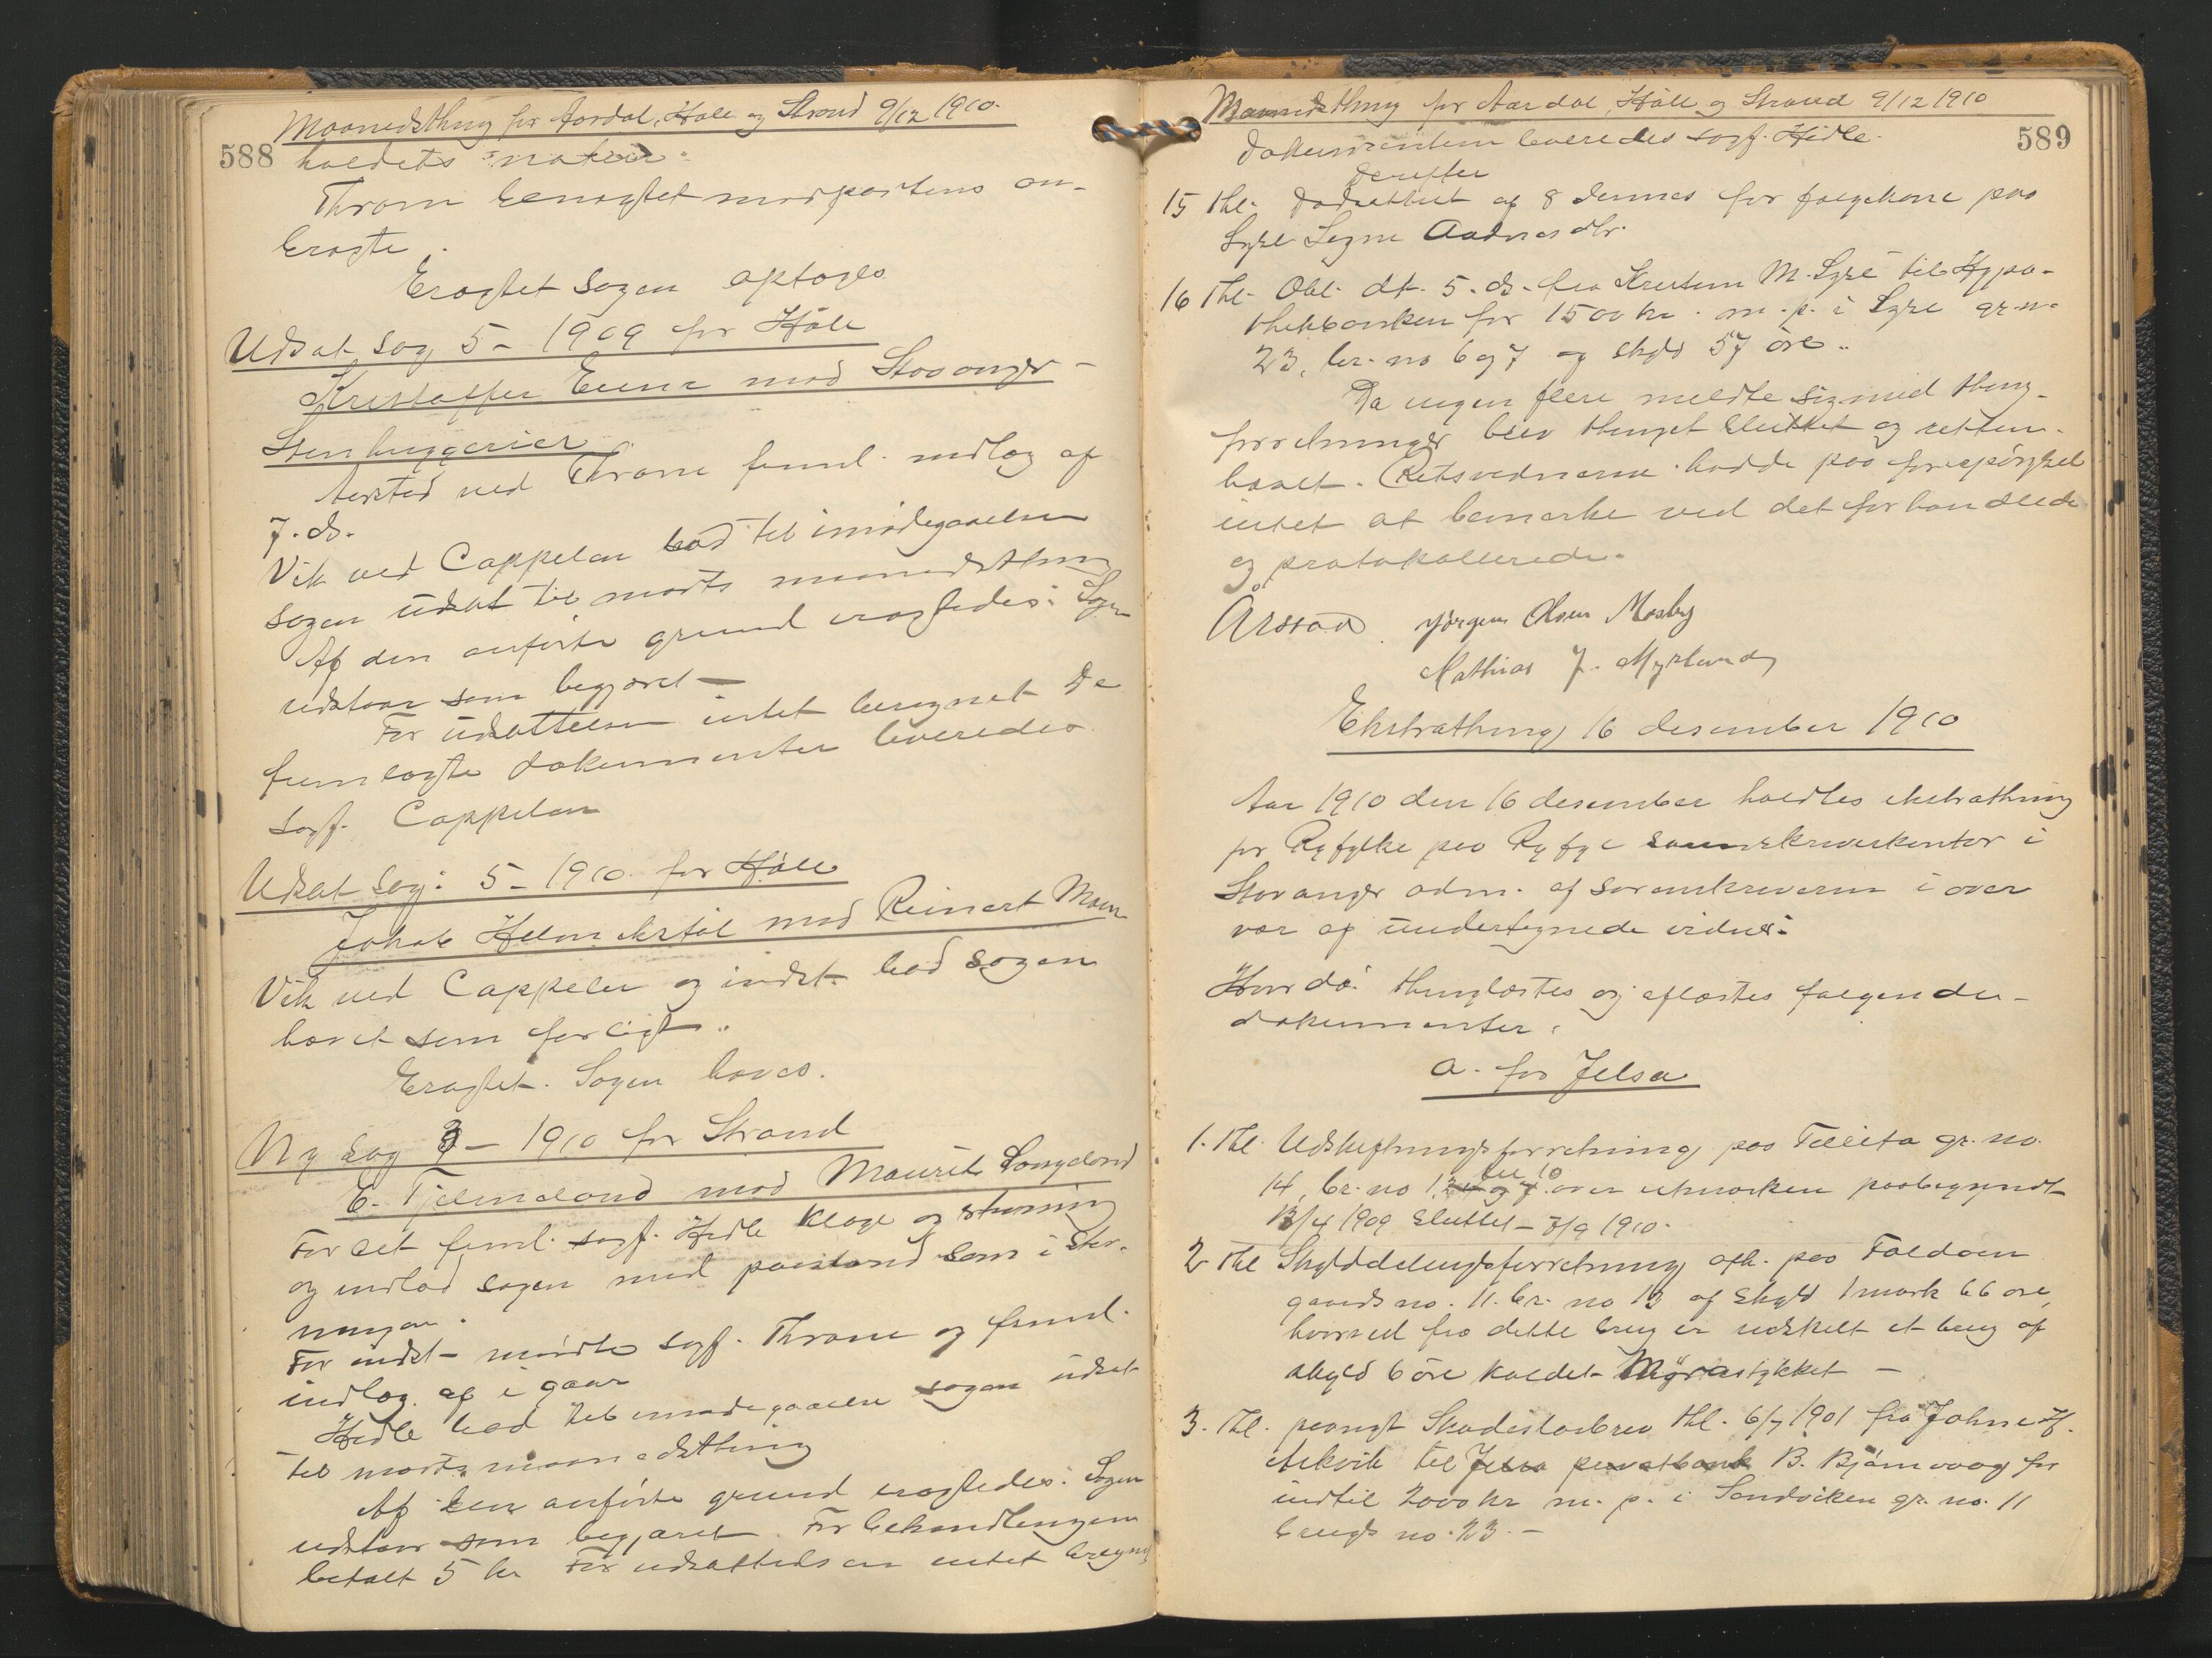 Maanedsthing for Aardal, Høle og Strand 9/12 1910.
588
holdets natur.
Thrane benegtet modpartens an-
bragte.
Eragtet Sagen optages
Udsat sag 5 - 1909 for Høle
Kristoffer Eiene mod Stavanger
Stenhuggerier
Aarstad ved Thrane freml. indlæg af
7. ds.
Vik ved Cappelen bad til imødegaaelse
sagen udsat til marts maanedsthing
Af den anførte grund eragtedes: Sagen
udstaar som begjæret -
For udsættelsen intet beregnet De
fremlagte dokumenter leveredes
sagf. Cappelen
Udsat sag: 5 - 1910 for Høle
Jakob Helmikstøl mod Reinert Moen
Vik ved Cappelen og indst. bad sagen
hævet som forligt.
Eragtet. Sagen hæves.
Ny sag 3 - 1910 for Strand
E. Tjelmeland mod Maurits Langeland
For cit. freml. sagf. Hidle klage og stevning
og indlod sagen med paastand som i stev-
ningen.
For indst. mødte sagf. Thrane og freml.
indlæg af i gaar
Hidle bad til imødegaaelse sagen udsat
til marts maanedsthing
Af den anførte grund eragtedes: Sagen
udstaar som begjæret. For behandlingen
betalt 5 kr For udsættelsen intet beregnet
Maanedsthing for Aardal, Høle og Strand 9/12 1910
589
Dokumenterne leveredes sagf. Hidle.
Derefter
15 Thl. Dødsattest af 8 dennes for følgekone paa
Lyse Aadnesdtr.
16 Thl. Obl. dt. 5. ds. fra Kresten M. Lyse til Hypo-
thekbanken for 1500 kr. m. p. i Lyse gr. n.
23, br. no 6 og 7 af skyld 57 øre.
Da ingen flere meldte sig med thing-
forretninger blev thinget sluttet og retten
hævet. Retsvidnerne havde paa forespørgsel
intet at bemerke ved det forhandlede
og protokollerede.
Aarstad Jørgen Olsen Mosby
Mathias J. Myrland
Ekstrathing 16 desember 1910
Aar 1910 den 16 desember holdtes ekstrathing
for Ryfylke paa Ryfylke sorenskriverkontor i
Stavanger adm. af sorenskriveren i over
vær af undertegnede vidner:
Hvorda: thinglæstes og aflæstes følgende
dokumenter:
a. for Jelsa
1. Thl. Udskiftningsforretning paa gr. no.
14, br. no 1 til 10 over utmarken paabegyndt
13/4 1909 sluttet 7/9 1910.
2 Thl Skylddelingsforretning afh. paa Foldøen
gaards no. 11. br. no 12 af skyld 1 mark 66 øre,
hvorved fra dette brug er udskilt et brug af
skyld 6 øre kaldet Myrastykket -
3. Thl. paanyt Skadesløsbrev thl. 6/7 1901 fra Johne H.
til Jelsa privatbank B. Bjørnevaag for
indtil 2000 kr m. p. i Sandviken gr. no. 11
brugs no. 23. -